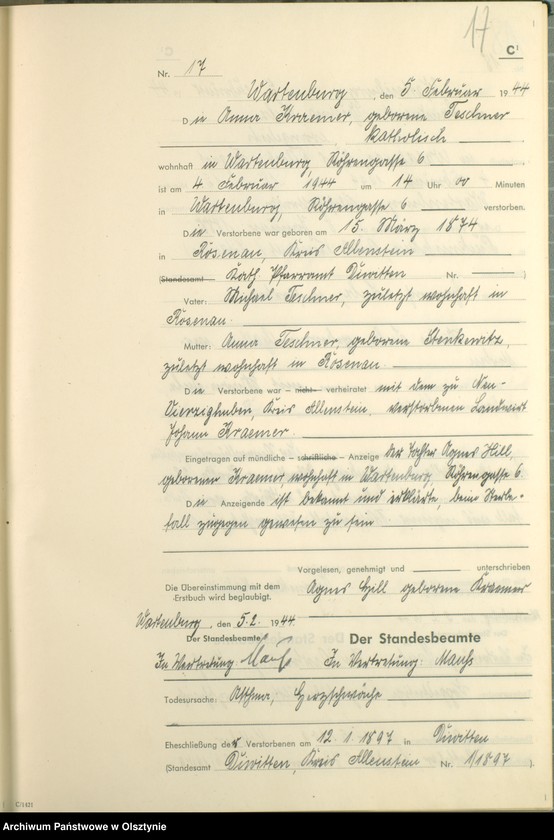 17
C¹
Nr. 17
Wartenburg, den 5. Februar 1944
Die Anna Kraemer, geborene Teschner
katholisch
wohnhaft in Wartenburg, Röhrengasse 6
ist am 4. Februar 1944 um 14 Uhr 00 Minuten
in Wartenburg, Röhrengasse 6 verstorben.
Die Verstorbene war geboren am 15. März 1874
in Rosenau, Kreis Allenstein
(Standesamt Kath. Pfarramt Diwitten Nr. )
Vater: Michael Teschner, zuletzt wohnhaft in
Rosenau.
Mutter: Anna Teschner, geborene
zuletzt wohnhaft in Rosenau.
Die Verstorbene war – nicht – verheiratet mit dem zu Neu-
Vierzighuben, Kreis Allenstein verstorbenen Landwirt
Johann Kraemer.
Eingetragen auf mündliche – schriftliche – Anzeige der Tochter Agnes Hill,
geborenen Kraemer, wohnhaft in Wartenburg, Röhrengasse 6.
Die Anzeigende ist bekannt und erklärte, beim Sterbe-
fall zugegen gewesen zu sein
Vorgelesen, genehmigt und unterschrieben
Die Übereinstimmung mit dem
Erstbuch wird beglaubigt.
Agnes Hill geborene Kraemer
Wartenburg, den 5.2. 1944
Der Standesbeamte
Der Standesbeamte
In Vertretung:
In Vertretung:
Todesursache: Asthma, Herzschwäche
Eheschließung der Verstorbenen am 12.1.1897 in Diwitten
(Standesamt Diwitten, Kreis Allenstein Nr. 1/1897 ).
C/1421
Archiwum Państwowe w Olsztynie